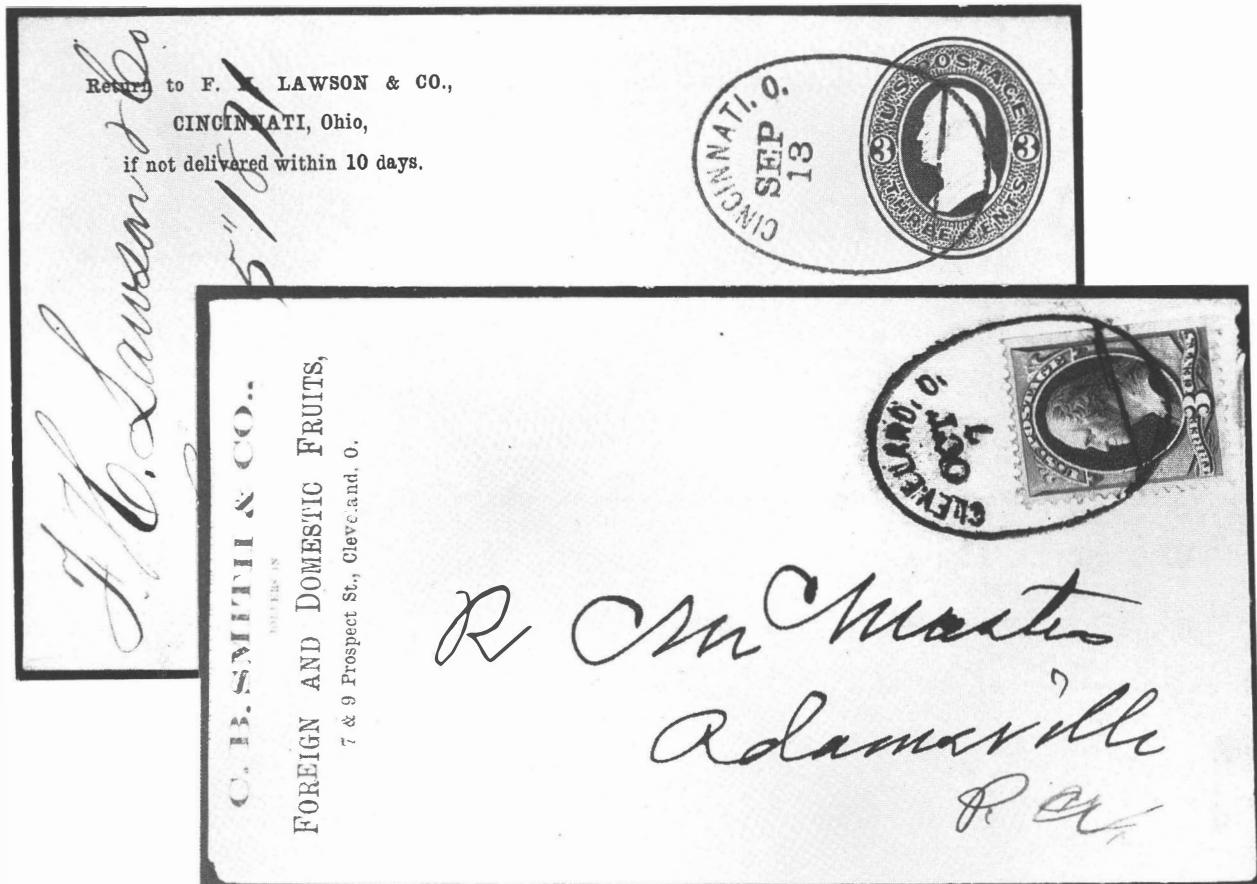 Return to F. H. LAWSON & CO.,
CINCINNATI, Ohio,
if not delivered within 10 days.
F. H. Lawson & Co
5" 1871
CINCINNATI. O.
SEP
13
U.S. POSTAGE
3 3
THREE CENTS
C. B. SMITH & CO.,
DEALERS IN
FOREIGN AND DOMESTIC FRUITS,
7 & 9 Prospect St., Cleveland, O.
CLEVELAND, O.
OCT
7
U.S. POSTAGE
3
R McMasters
Adamsville